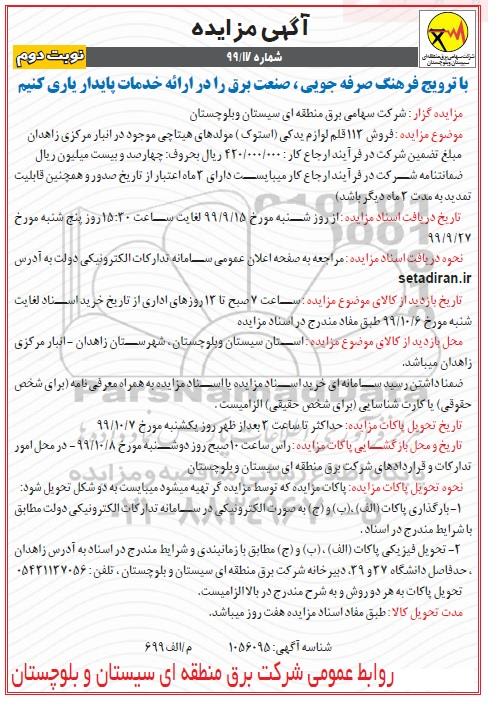 آگهی مزایده
شماره ۹۹/۱۷
نوبت دوم
شرکت سهامی برق منطقه‌ای
سیستان و بلوچستان
با ترویج فرهنگ صرفه جویی ، صنعت برق را در ارائه خدمات پایدار یاری کنیم
مزایده گزار : شرکت سهامی برق منطقه ای سیستان وبلوچستان
موضوع مزایده : فروش ۱۱۲ قلم لوازم یدکی (استوک) مولدهای هیتاچی موجود در انبار مرکزی زاهدان
مبلغ تضمین شرکت در فرآیند ارجاع کار : ۴۲۰/۰۰۰/۰۰۰ ریال بحروف: چهارصد و بیست میلیون ریال
ضمانتنامه شرکت در فرآیند ارجاع کار میبایست دارای ۳ ماه اعتبار از تاریخ صدور و همچنین قابلیت
تمدید به مدت ۳ ماه دیگر باشد)
تاریخ دریافت اسناد مزایده : از روز شنبه مورخ ۹۹/۹/۱۵ لغایت ساعت ۱۵:۳۰ روز پنج شنبه مورخ
۹۹/۹/۲۷
نحوه دریافت اسناد مزایده : مراجعه به صفحه اعلان عمومی سامانه تدارکات الکترونیکی دولت به آدرس
setadiran.ir
تاریخ بازدید از کالای موضوع مزایده : ساعت ۷ صبح تا ۱۳ روزهای اداری از تاریخ خرید اسناد لغایت
شنبه مورخ ۹۹/۱۰/۶ طبق مفاد مندرج در اسناد مزایده
محل بازدید از کالای موضوع مزایده : استان سیستان وبلوچستان ، شهرستان زاهدان – انبار مرکزی
زاهدان میباشد.
ضمنا داشتن رسید سامانه ای خرید اسناد مزایده یا اسناد مزایده به همراه معرفی نامه (برای شخص
حقوقی) یا کارت شناسایی (برای شخص حقیقی) الزامیست .
تاریخ تحویل پاکات مزایده: حداکثر تا ساعت ۲ بعداز ظهر روز یکشنبه مورخ ۹۹/۱۰/۷
تاریخ و محل بازگشایی پاکات مزایده : راس ساعت ۱۰ صبح روز دوشنبه مورخ ۹۹/۱۰/۸ – در محل امور
تدارکات و قراردادهای شرکت برق منطقه ای سیستان و بلوچستان
نحوه تحویل پاکات مزایده: پاکات مزایده که توسط مزایده گر تهیه میشود میبایست به دو شکل تحویل شود:
۱–بارگذاری پاکات (الف) ،(ب) و (ج) به صورت الکترونیکی در سامانه تدارکات الکترونیکی دولت مطابق
با شرایط مندرج در اسناد .
۲– تحویل فیزیکی پاکات (الف) ، (ب) و (ج) مطابق با زمانبندی و شرایط مندرج در اسناد به آدرس زاهدان
، حدفاصل دانشگاه ۲۷ و ۲۹، دبیرخانه شرکت برق منطقه ای سیستان و بلوچستان ، تلفن : ۰۵۴۳۱۱۳۷۰۵۶
تحویل پاکات به هر دو روش و به شرح مندرج در بالا الزامیست.
مدت تحویل کالا : طبق مفاد اسناد مزایده هفت روز میباشد.
شناسه آگهی: ۱۰۵۶۰۹۵ م/الف ۶۹۹
روابط عمومی شرکت برق منطقه ای سیستان و بلوچستان